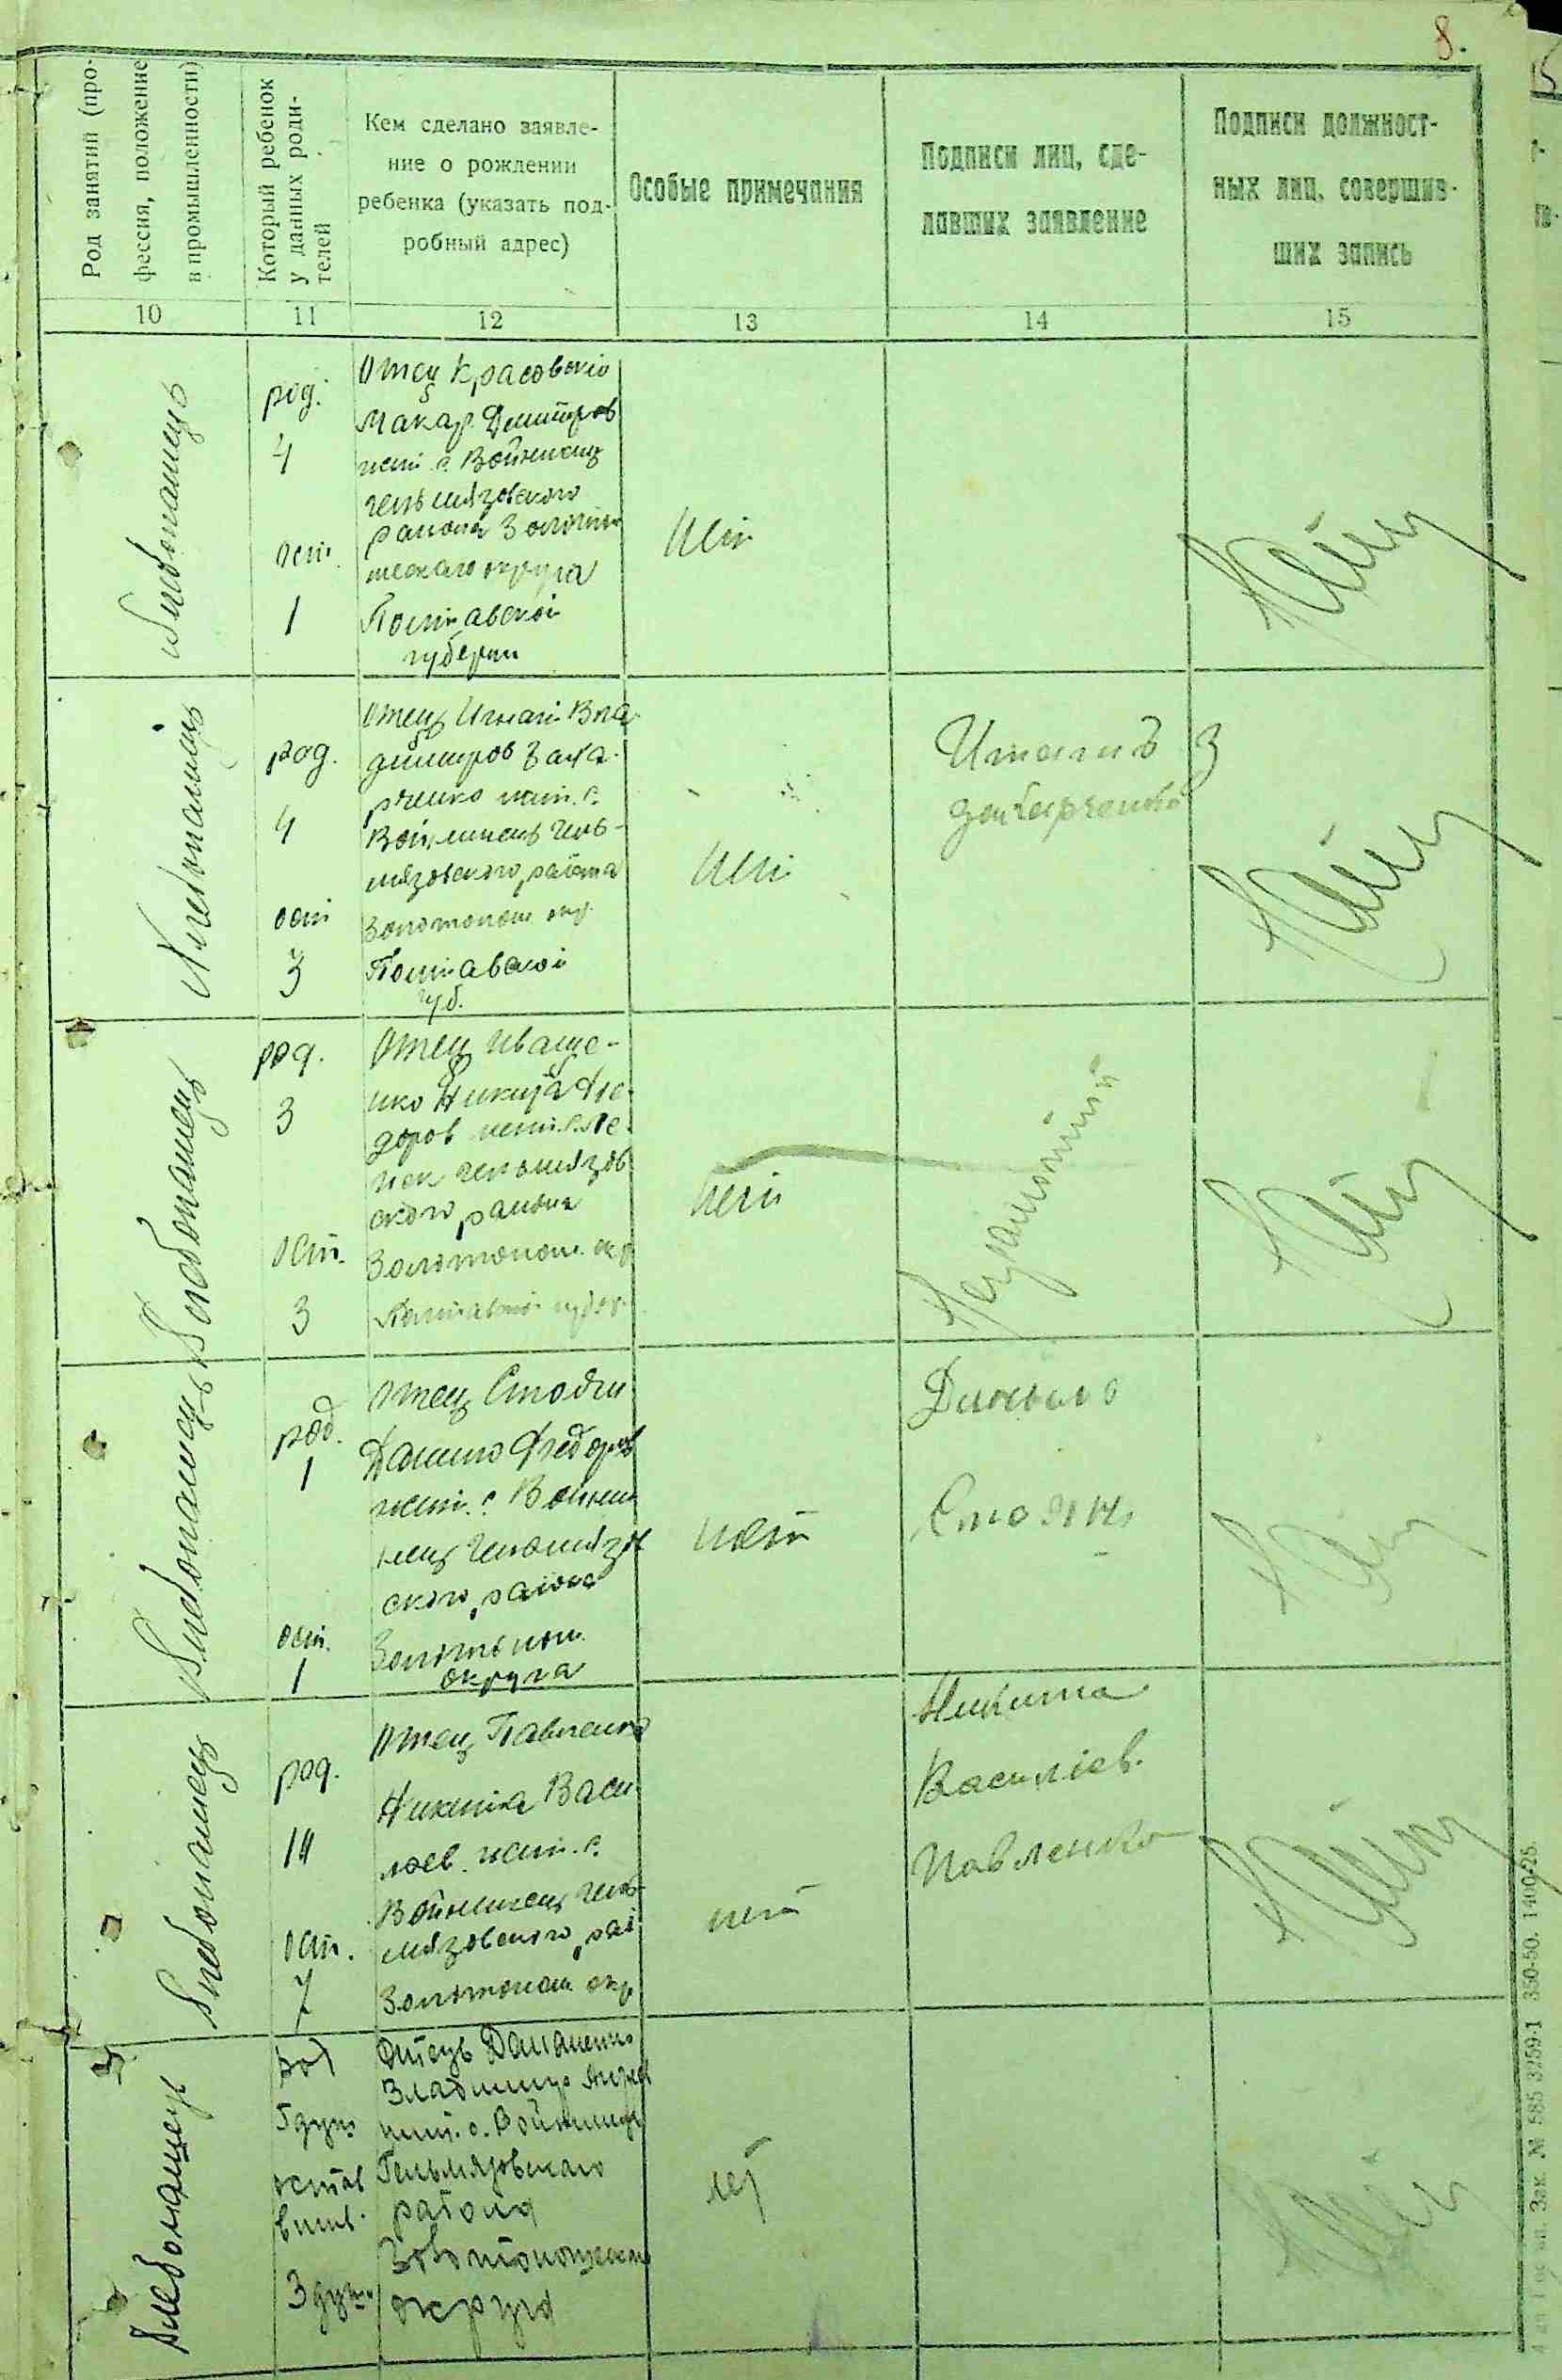 8.
Род занятий (про-
фессия, положение
в промышленности)
Который ребенок
у данных роди-
телей
Кем сделано заявле-
ние о рождении
ребенка (указать под-
робный адрес)
Особые примечания
Подписи лиц, сде-
лавших заявление
Подписи должност-
ных лиц, совершив-
ших запись
10
11
12
13
14
15
Хлебопашец
род.
4
ост.
1
Отец Красовскій
Макар Димитров
жит. с. Войнинец
Гельмязовского
района Золотоно
шского округа
Полтавской
губерни
Нет
Хлебопашец
род.
4
ост
3
Отец Игнат Вла
димиров Заха
рченко жит. с.
Войнинец Гель-
мязовского района
Золотонош окр.
Полтавской
губ.
Нет
Игнатъ З
Захарченко
Хлебопашец
род.
3
ост.
3
Отец Иваще-
нко Никита Фе-
доров жит. с.
Гельмязов
ского района
Золотонош. окр
Полтавской губер.
Нет
Неграмотный
Хлебопашец
род.
1
ост.
1
Отец Стоян
Данило Федоров
жит. с. Войнин
нец Гельмязов
ского района
Золотонош.
округа
нет
Данило
Стоян
Хлебопашец
род.
14
ост.
7
Отец Павленко
Никита Васи
льев. жит. с.
Войнинец Гель-
мязовского рай
Золотонош окр
нет
Никита
Василіев.
Павленко
Хлебопашец
род
5 душ
остав
3 душ
Отець
Владимир Андре
жит. с. Войнинец
Гельмязовского
района
Золотоношского
округа
нет
Зак. № 585 3259-1 350-50. 1400-25.